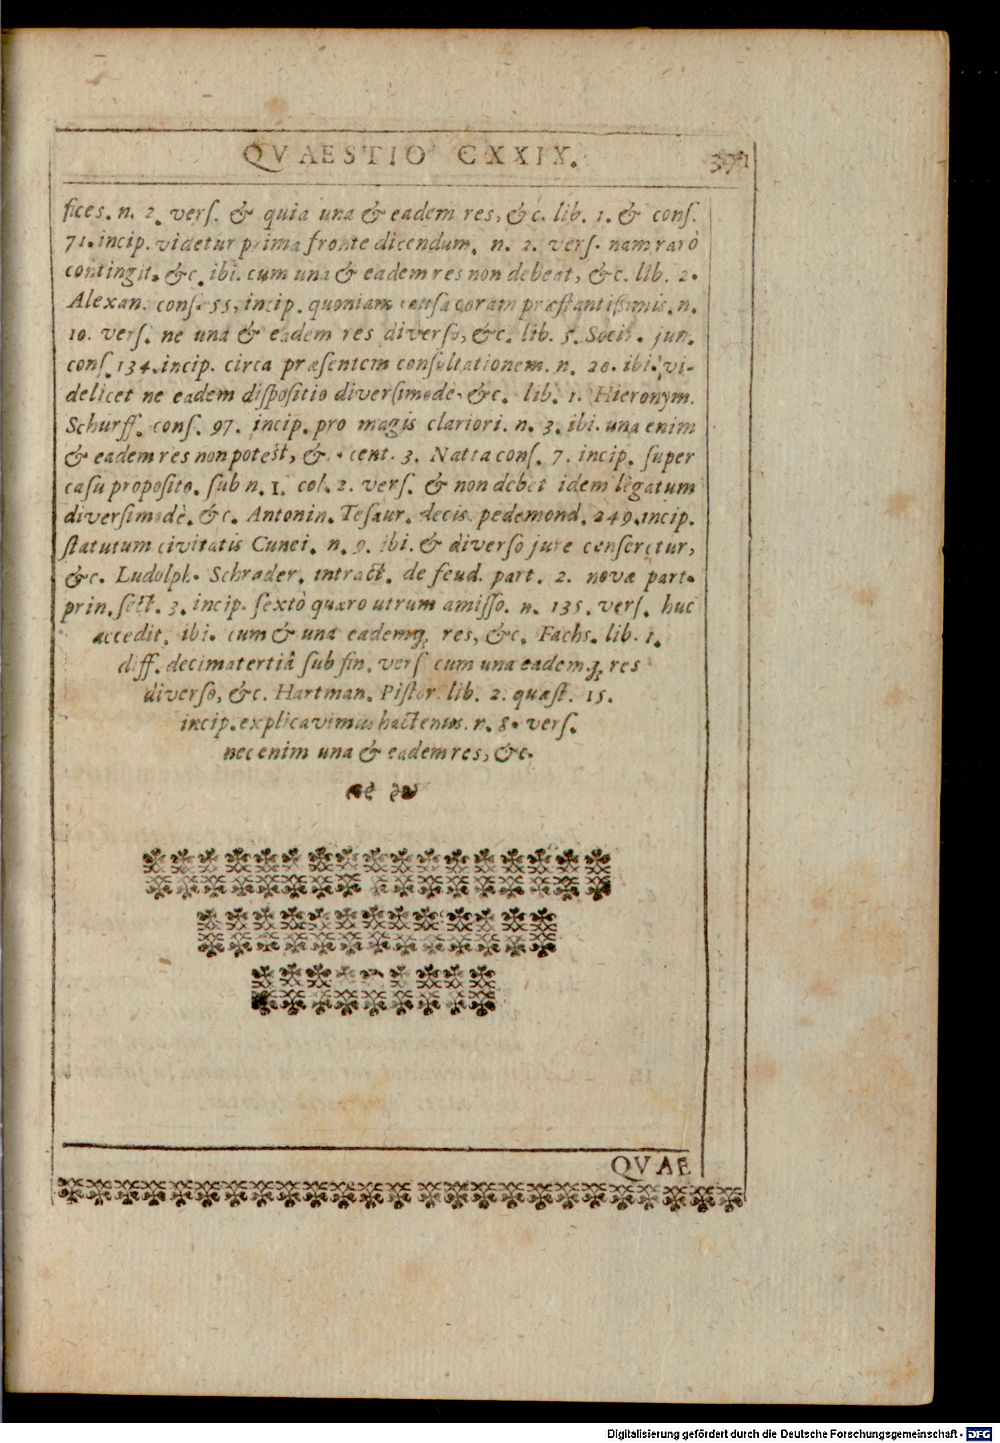 QVAESTIO CXXIX. 371
fices. n. 2. verſ. & quia una & eadem res, &c. lib. 1. & conſ.
71. incip. videtur prima fronte dicendum, n. 2. verſ. nam rarò
contingit, &c. ibi. cum una & eadem res non debeat, &c. lib. 2.
Alexan. conſ. 55, incip. quoniam cauſa coram præſtantiſsimis. n.
10. verſ. ne una & eadem res diverſo, &c. lib. 5. Socin. jun.
conſ. 134. incip. circa præſentem conſultationem. n. 20. ibi. vi-
delicet ne eadem diſpoſitio diverſimodè, &c. lib. 1. Hieronym.
Schurff. conſ. 97. incip. pro magis clariori. n. 3. ibi. una enim
& eadem res non poteſt, &. cent. 3. Natta conſ. 7. incip. ſuper
caſu propoſito. ſub n. 1. col. 2. verſ. & non debet idem lègatum
diverſimodè. &c. Antonin. Teſaur. decis. pedemond. 249. incip.
ſtatutum civitatis Cunei. n. 9. ibi. & diverſo jure cenſeretur,
&c. Ludolph. Schrader. intract. de feud. part. 2. novæ part.
prin. ſect. 3. incip. ſextò quæro utrum amiſſo. n. 135. verſ. huc
accedit, ibi. cum & una eademq; res, &c. Fachs. lib. 1.
diff. decimatertiâ ſub fin. verſ cum una eademq; res
diverſo, &c. Hartman. Piſtor. lib. 2. quæſt. 15.
incip. explicavimus hactenus. n. 8. verſ.
nec enim una & eadem res, &c.
QVAE
Digitalisierung gefördert durch die Deutsche Forschungsgemeinschaft - DFG